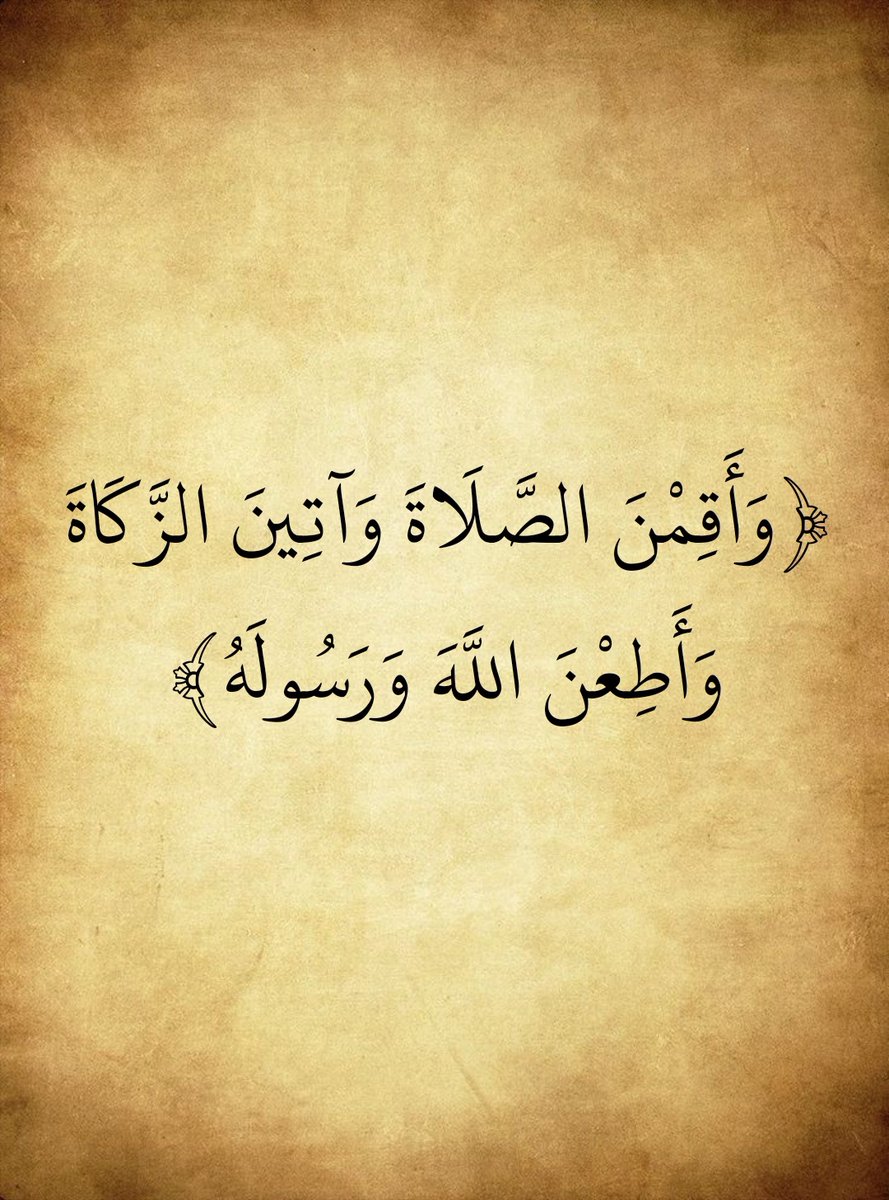 ﴿وَأَقِمْنَ الصَّلَاةَ وَآتِينَ الزَّكَاةَ
وَأَطِعْنَ اللَّهَ وَرَسُولَهُ﴾